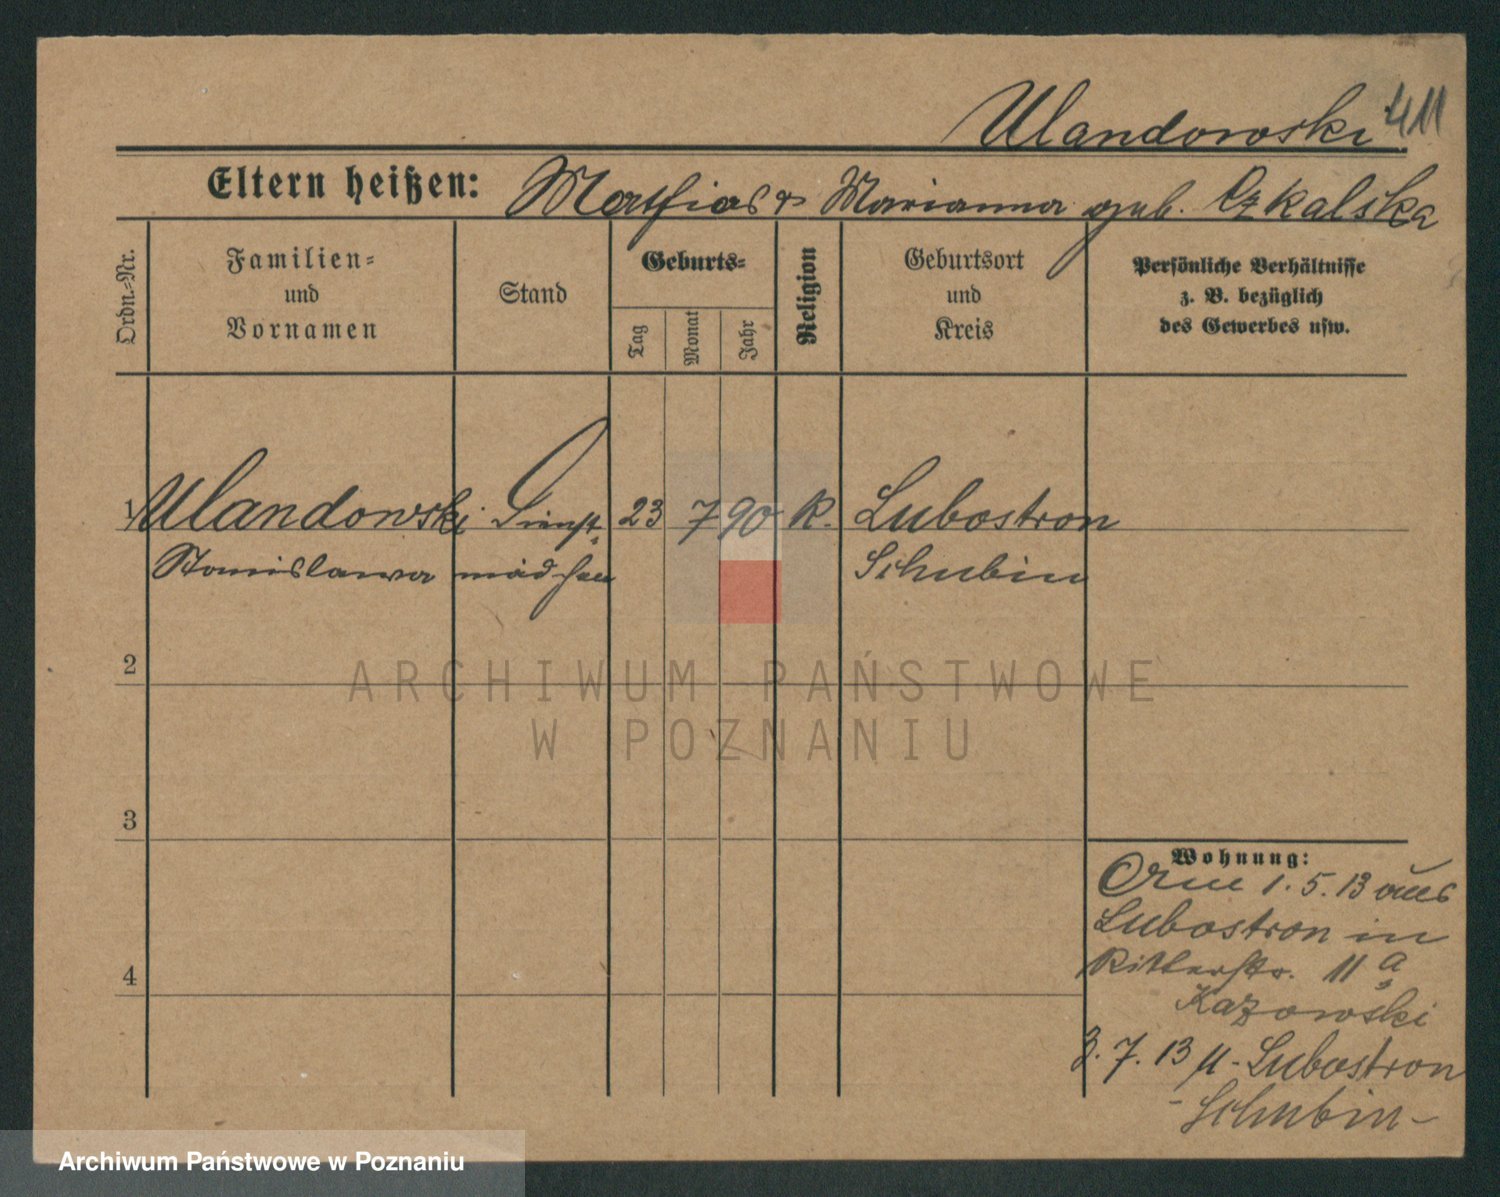 Ulandowski 411
Eltern heißen: Mathias & Marianna geb. Rzkalska
Ordn.-Nr.
Familien-
und
Vornamen
Stand
Geburts-
Tag
Monat
Jahr
Religion
Geburtsort
und
Kreis
Persönliche Verhältnisse
z. B. bezüglich
des Gewerbes usw.
1 Ulandowski Dienst- 23 7 90 K. Lubostron
Stanislawa mädchen Schubin
ARCHIWUM PAŃSTWOWE
W POZNANIU
2
3
4
Wohnung:
1. 5. 13 aus
Lubostron in
Ritterstr. 11a
Kazowski
3. 7. 13 n. Lubostron
- Schubin -
Archiwum Państwowe w Poznaniu